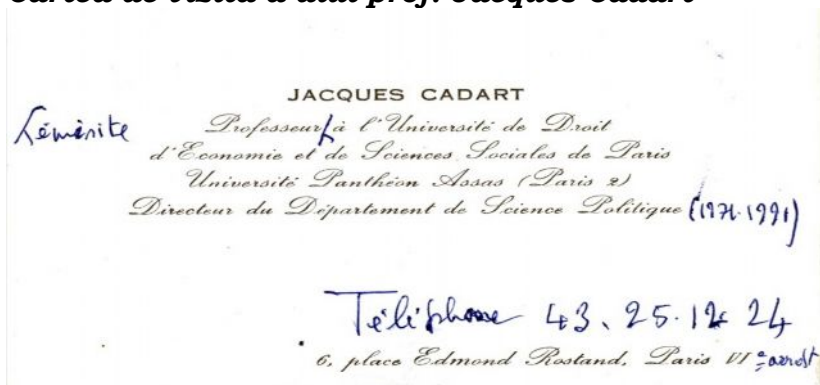 prof. Jacques Cadart
JACQUES CADART
émérite Professeur à l'Université de Droit
d'Economie et de Sciences Sociales de Paris
Université Panthéon Assas (Paris 2)
Directeur du Département de Science Politique
Téléphone 43.25.12 24
6, place Edmond Rostand, Paris VI e arrdt